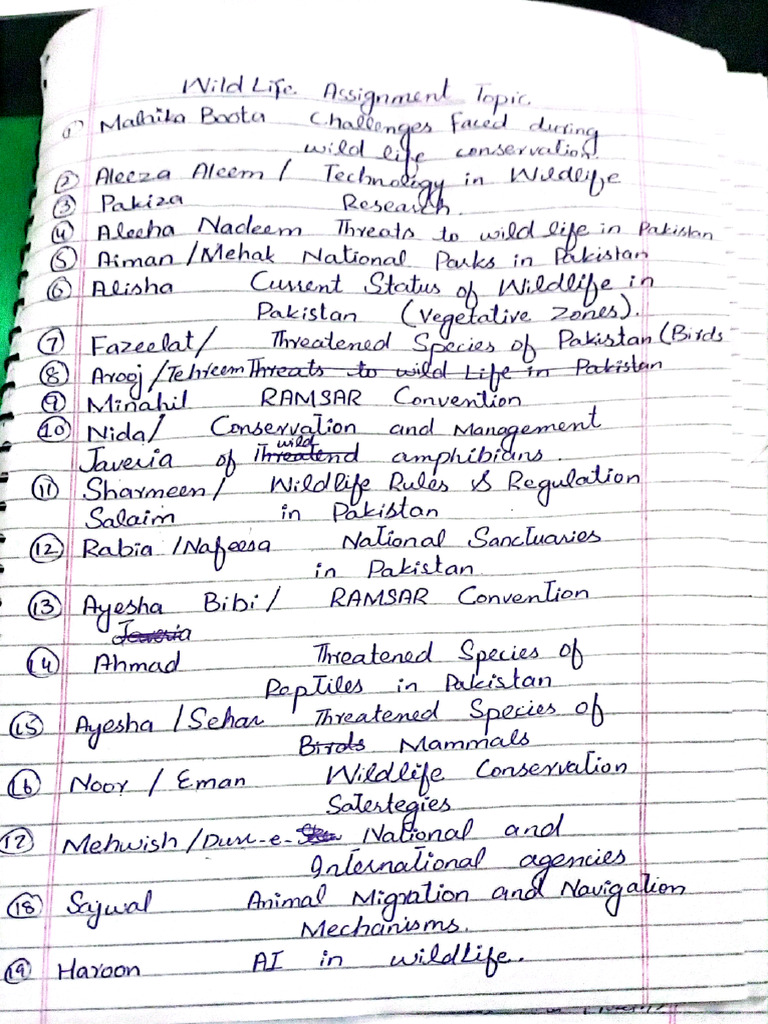 Wild Life Assignment Topic.
1) Mahika Boota Challenges faced during
wild life conservation.
2 Aleeza Aleem / Technology in Wildlife
3 Pakiza Research.
4 Aleeha Nadeem Threats to wild life in Pakistan
5 Aiman / Mehak National Parks in Pakistan
6 Alisha Current Status of Wildlife in
Pakistan (Vegetative Zones).
7 Fazeelat / Threatened Species of Pakistan (Birds
8 Arooj / Tehreem Threats to wild Life in Pakistan
9 Minahil RAMSAR Convention
10 Nida / Conservation and Management
wild
Javeria of Threatend amphibians.
11 Sharmeen / Wildlife Rules & Regulation
Salaim in Pakistan
12 Rabia / Nafeesa National Sanctuaries
in Pakistan
13 Ayesha Bibi / RAMSAR Convention
Javeria
14 Ahmad Threatened Species of
Reptiles in Pakistan
15 Ayesha / Sehar Threatened Species of
Birds Mammals
16 Noor / Eman Wildlife Conservation
Saterstegies
17 Mehwish / Durr-e- National and
International agencies
18 Sajwal Animal Migration and Navigation
Mechanisms.
19 Haroon AI in wildlife.